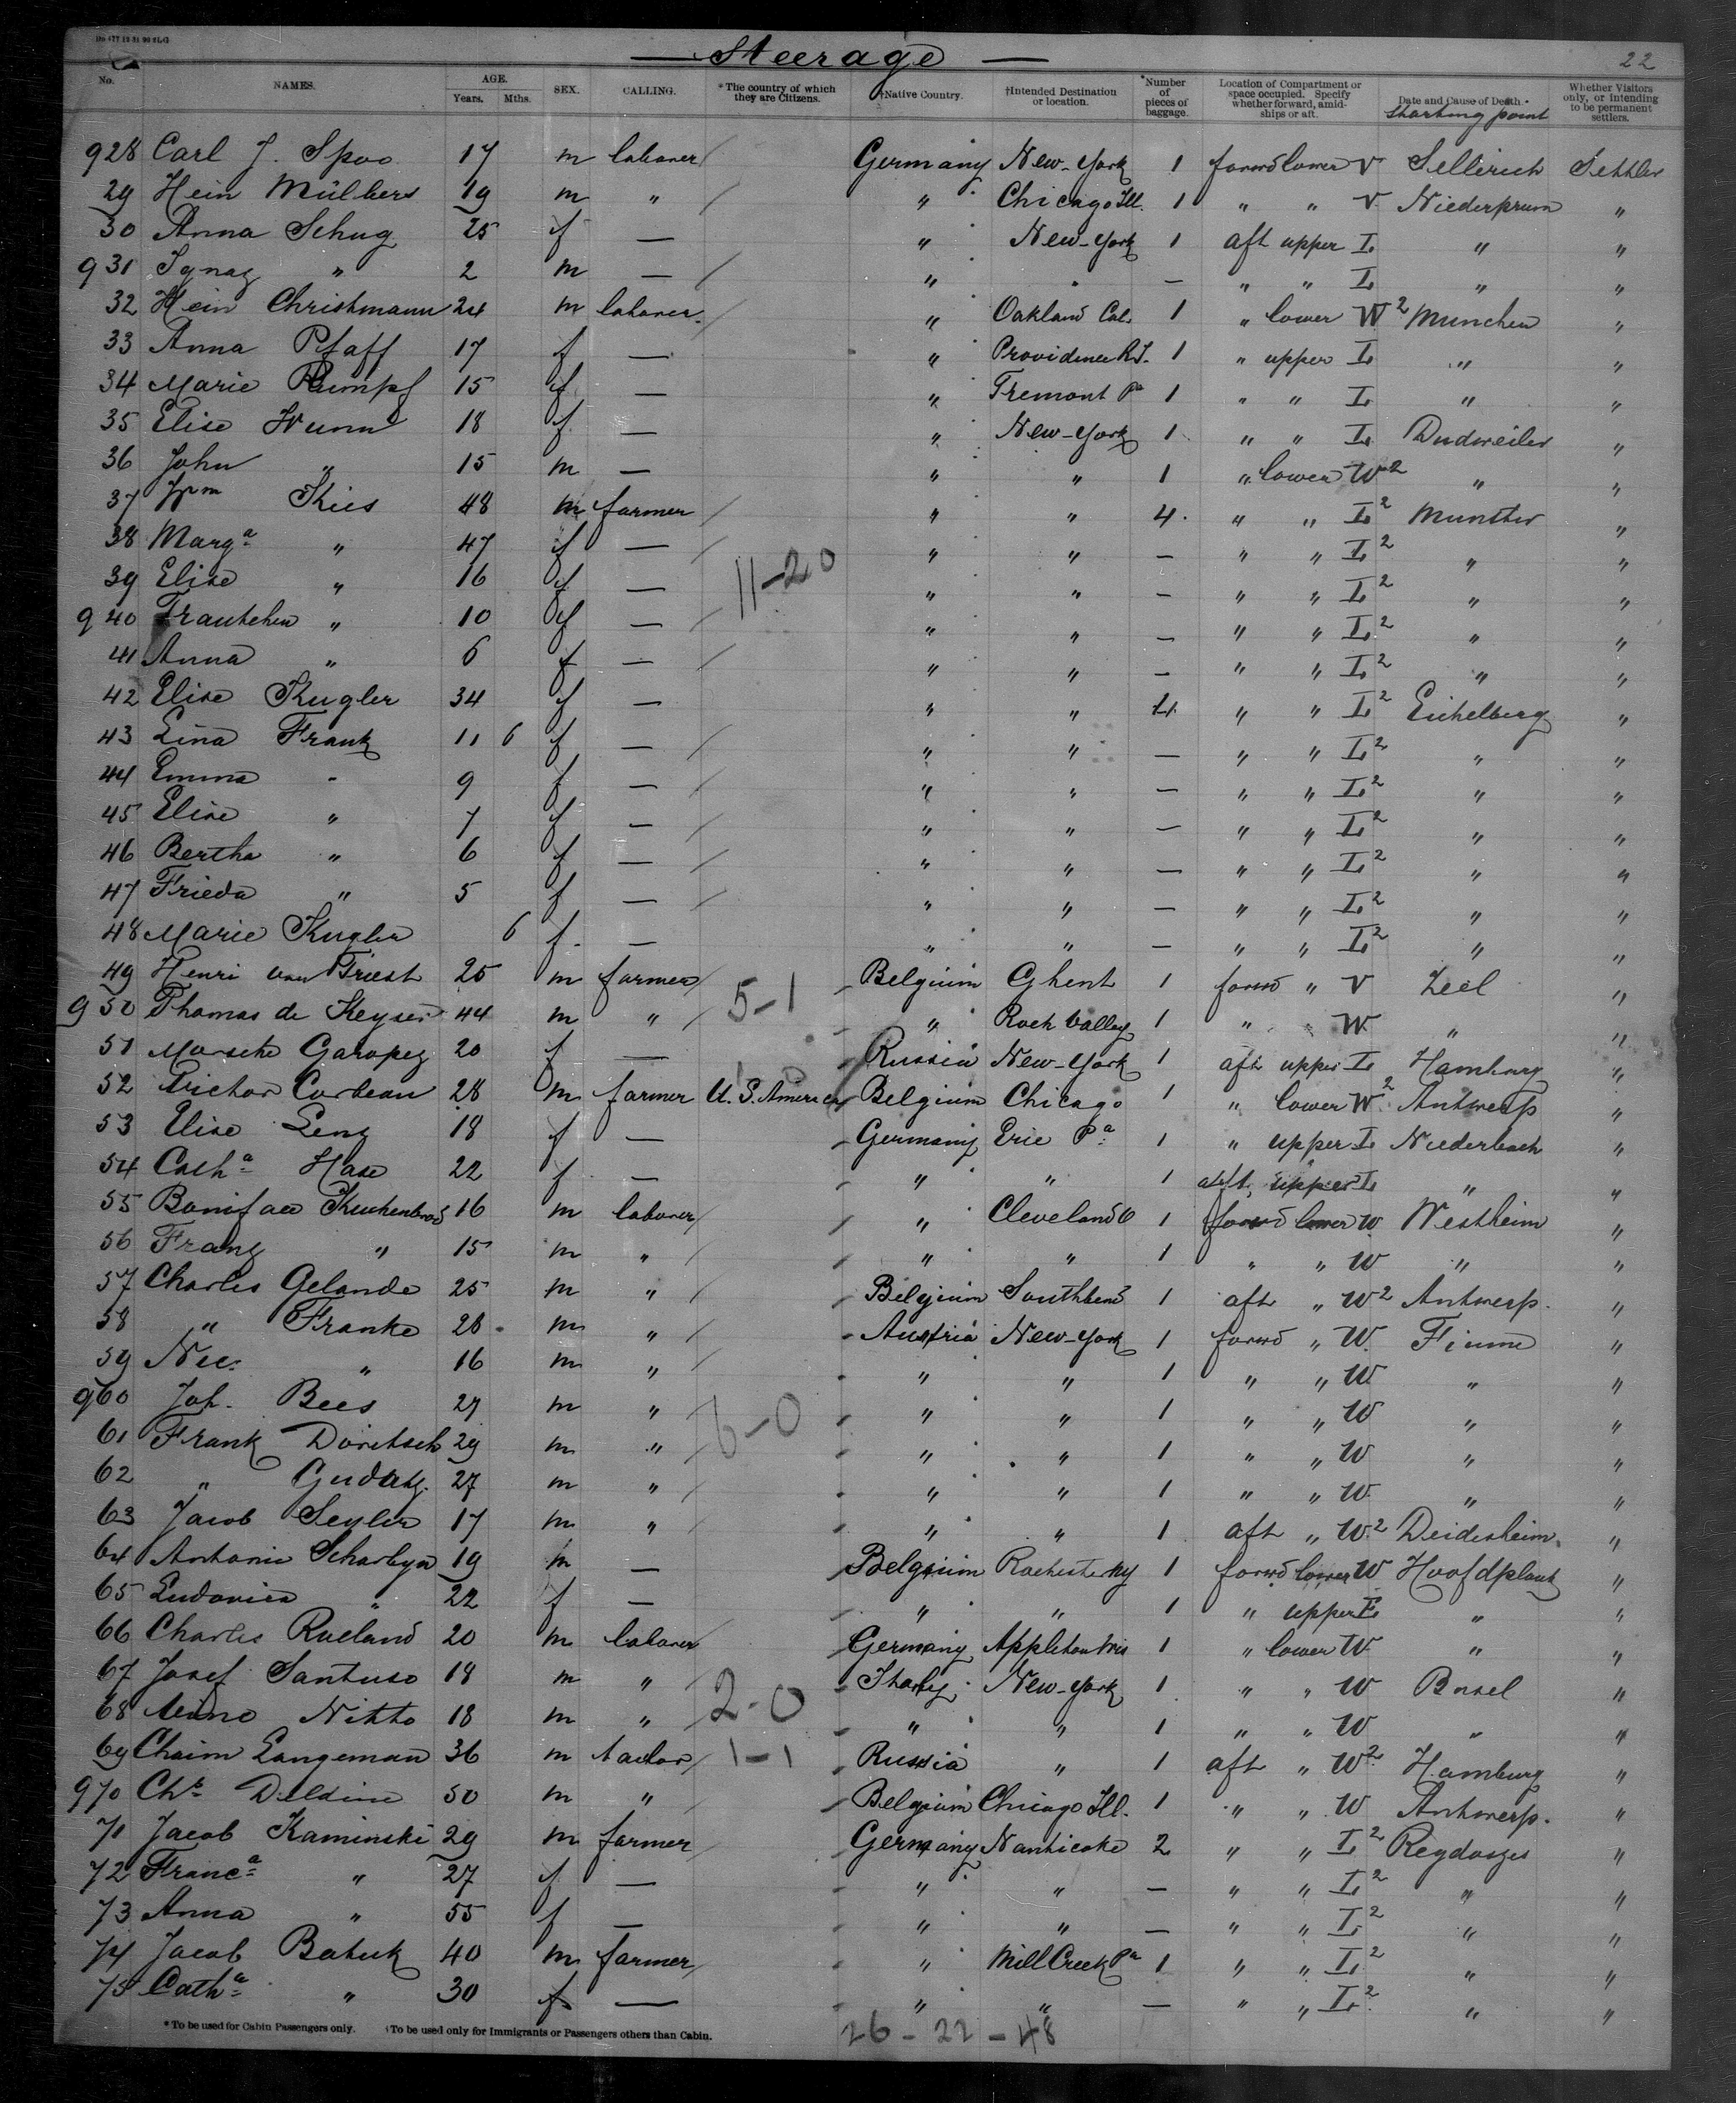 Steerage
22
No. NAMES. AGE. Years. Mths. SEX. CALLING. *The country of which they are Citizens. †Native Country. †Intended Destination or location. *Number of pieces of baggage. Location of Compartment or space occupied. Specify whether forward, amidships or aft. Date and Cause of Death. Starting point Whether Visitors only, or intending to be permanent settlers.
928 Carl J. Spoo 17 m laborer Germany New-York 1 forwd lower V Sellerich Settler
29 Hein Mülbers 19 m " " Chicago Ill. 1 " " V Niederprum "
30 Anna Schug 25 f — " New-York 1 aft upper L " "
931 Ignaz " 2 m — " " — " " L " "
32 Hein Christmann 24 m laborer " Oakland Cal. 1 " lower W2 Munchen "
33 Anna Pfaff 17 f — " Providence R.I. 1 " upper L " "
34 Marie Rumpf 15 f — " Tremont Pa 1 " " L " "
35 Elise Wunn 18 f — " New-York 1 " " L Dudweiler "
36 John " 15 m — " " 1 " lower W2 " "
37 Wm Kies 48 m farmer " " 4 " " L2 Munster "
38 Marga " 47 f — " " — " " L2 " "
39 Elise " 16 f — 11-20 " " — " " L2 " "
940 Frautchen " 10 f — " " — " " L2 " "
41 Anna " 6 f — " " — " " L2 " "
42 Elise Kugler 34 f — " " 4 " " L2 Eichelberg "
43 Lina Frank 11 6 f — " " — " " L2 " "
44 Emma " 9 f — " " — " " L2 " "
45 Elise " 7 f — " " — " " L2 " "
46 Bertha " 6 f — " " — " " L2 " "
47 Frieda " 5 f — " " — " " L2 " "
48 Marie Kugler 6 f — " " — " " L2 " "
49 Henri van Triest 25 m farmer Belgium Ghent 1 forwd " V Zeel "
950 Thomas de Keyser 44 m " 5-1 " Rock Valley 1 " " W " "
51 Garopez 20 f — Russia New-York 1 aft upper L Hamburg "
52 Victor Corbeau 28 m farmer U.S. America Belgium Chicago 1 " lower W2 Antwerp "
53 Elise Leng 18 f — Germany Erie Pa 1 " upper L Niederbach "
54 Catha Hase 22 f — " " 1 aft upper L " "
55 Boniface Kuchenbrod 16 m laborer " Cleveland O 1 forwd lower W Westheim "
56 Franz " 15 m " " " 1 " " W " "
57 Charles Gelande 25 m " Belgium Southbend 1 aft " W2 Antwerp. "
58 " Franke 28 m " Austria New-York 1 forwd " W. Fiume "
59 Nic. " 16 m " " " 1 " " W " "
960 Joh. Bees 27 m " 6-0 " " 1 " " W " "
61 Frank Doritsch 29 m " " " 1 " " W " "
62 " Gudatz 27 m " " " 1 " " W " "
63 Jacob Seyler 17 m " " " 1 aft " W2 Deidesheim "
64 Antonie Scharlyn 19 m — Belgium Rochester NY 1 forwd lower W Hoofdplaat "
65 Ludovica " 22 f — " " 1 " upper L " "
66 Charles Rueland 20 m laborer Germany Appleton Wis 1 " lower W " "
67 Josef Santuso 18 m " 2-0 Italy New-York 1 " " W Basel "
68 Nitto 18 m " " " 1 " " W " "
69 Chaim Langeman 36 m tailor 1-1 Russia " 1 aft " W2 Hamburg "
970 Chs Deldime 50 m " Belgium Chicago Ill. 1 " " W Antwerp. "
71 Jacob Kaminski 29 m farmer Germany Nanticoke 2 " " L2 "
72 Franca " 27 f — " " — " " L2 " "
73 Anna " 55 f — " " — " " L2 " "
74 Jacob Batuk 40 m farmer " Mill Creek Pa 1 " " L2 " "
75 Catha " 30 f — " " — " " L2 " "
*To be used for Cabin Passengers only. †To be used only for Immigrants or Passengers others than Cabin.
26-22-48